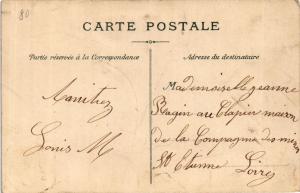 80
CARTE POSTALE
Partie réservée à la Correspondance
Adresse du destinataire
Mademoiselle Jeanne
au Clapier maison
de la Compagnie des mines
St Etienne Loire
Louis M